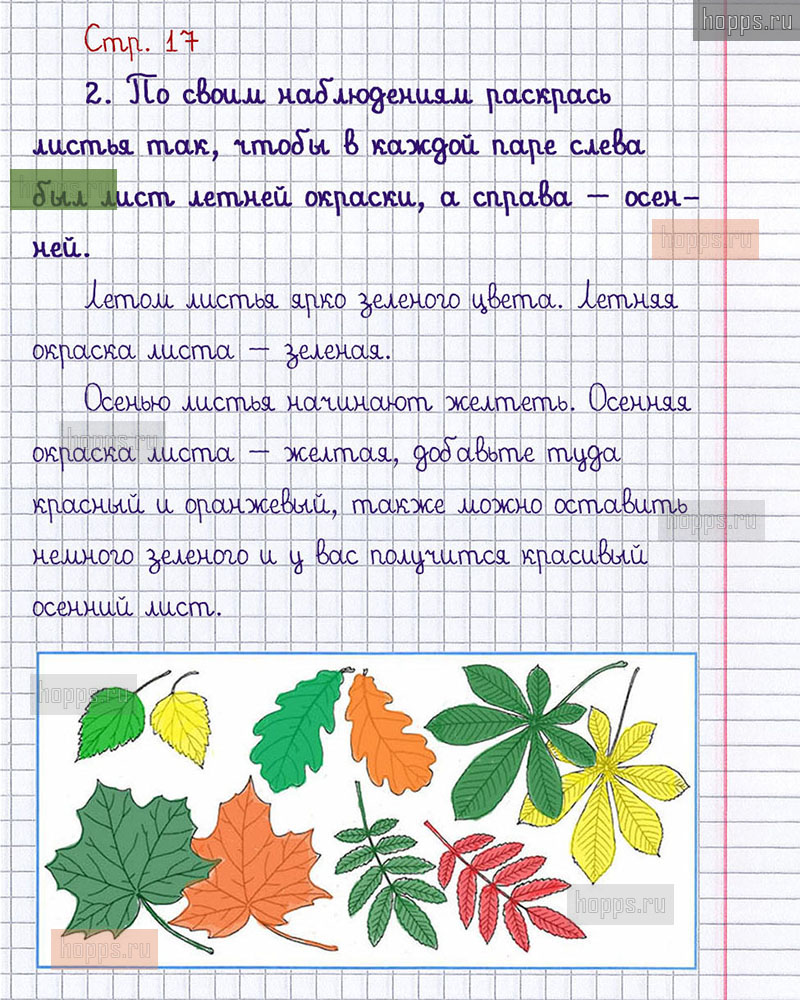 hopps.ru
Стр. 17
2. По своим наблюдениям раскрась
листья так, чтобы в каждой паре слева
был лист летней окраски, а справа – осен-
hopps.ru
ней.
Летом листья ярко зеленого цвета. Летняя
окраска листа – зеленая.
Осенью листья начинают желтеть. Осенняя
hopps.ru
окраска листа – желтая, добавьте туда
красный и оранжевый, также можно оставить
hopps.ru
немного зеленого и у вас получится красивый
осенний лист.
hopps.ru
hopps.ru
hopps.ru